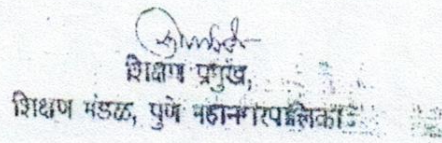 शिक्षण प्रमुख,
शिक्षण मंडळ, पुणे महानगरपालिका